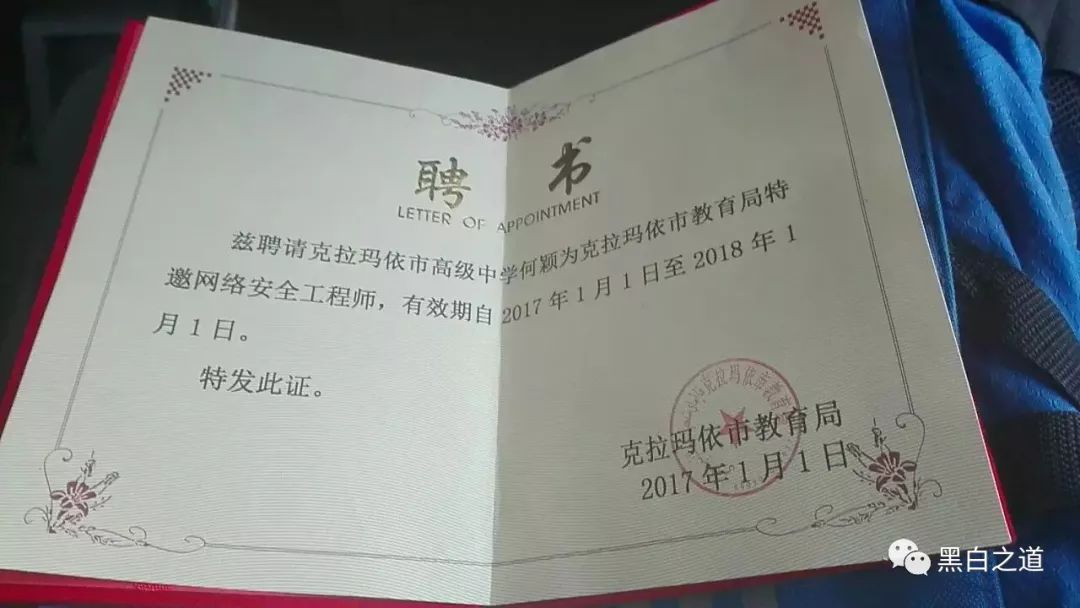 聘 书
LETTER OF APPOINTMENT
兹聘请克拉玛依市高级中学何颖为克拉玛依市教育局特
邀网络安全工程师，有效期自2017年1月1日至2018年1
月1日。
特发此证。
克拉玛依市教育局
克拉玛依市教育局
2017年1月1日
黑白之道